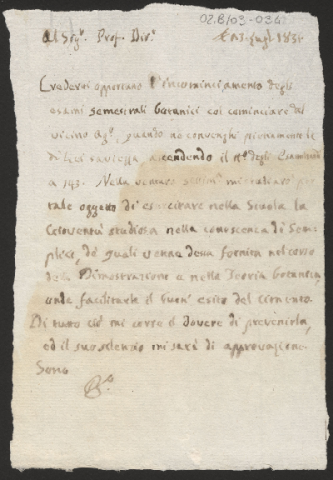 02.B/03-034
Al Sigr. Prof. Dirr.
li 23. Lugl. 1831
Crederei opportuno l'incominciamento degli
esami semestrali botanici col cominciare del
vicino Agº, quando ne convenghi pienamente la
di Lei saviezza ascendendo il nº degli Esaminandi
a 143. Nella ventura settimª mi
tale oggetto di esercitare nella Scuola la
Gioventù studiosa nella conoscenza di Sem-
plici, de' quali venne dessa fornita nel corso
della Dimostrazione e nella Teoria botanica,
onde facilitarle il buon esito del cimento.
Di tutto ciò mi corse il dovere di prevenirla,
ed il suo silenzio mi sarà di approvazione.
Sono